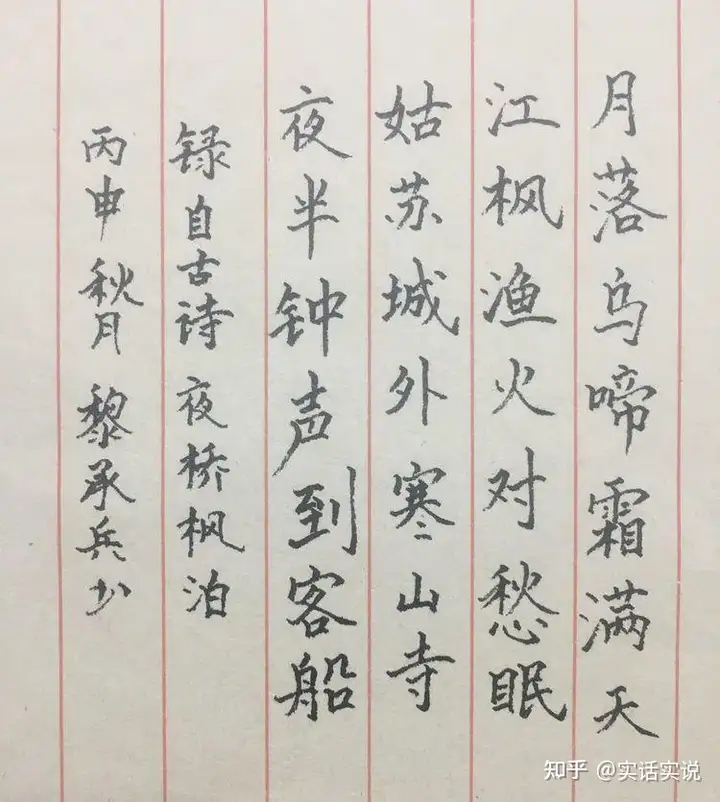 月落乌啼霜满天
江枫渔火对愁眠
姑苏城外寒山寺
夜半钟声到客船
録自古诗夜桥枫泊
丙申秋月黎承兵书
知乎 @实话实说